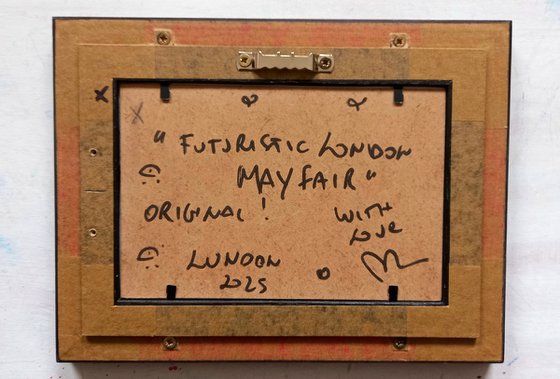 " FUTURISTIC LONDON
MAYFAIR "
ORIGINAL !
WITH
LOVE
LONDON
2025